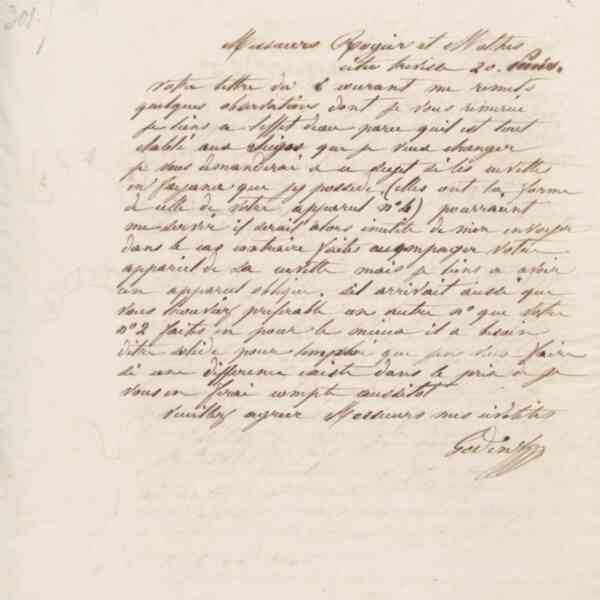 301
Messieurs Rogier et Mothes
cité trévise 20. Paris.
Votre lettre du 6 courant me remets
quelques observations dont je vous remercie
je tiens a l'effet d'eau parce quil est tout
établi aux sièges que je veux changer
je vous demanderai a ce sujet si les cuvettes
en fayance que j'ey possede (elles ont la forme
de celle de votre appareil n° 4) pourraient
me servir il serait alors inutile de m'en envoyer
dans le cas contraire faites accompagner votre
appareil de sa cuvette mais je tiens a avoir
un appareil oblique. Sil arrivait aussi que
vous trouviez préférable un autre n° que votre
n° 2 faites en pour le mieux il a besoin
d'être solide pour l'emploi que j'en veux faire
si une différence existe dans le prix je
vous en ferai compte aussitot
veuillez agreer Messieurs mes civilités
Godin